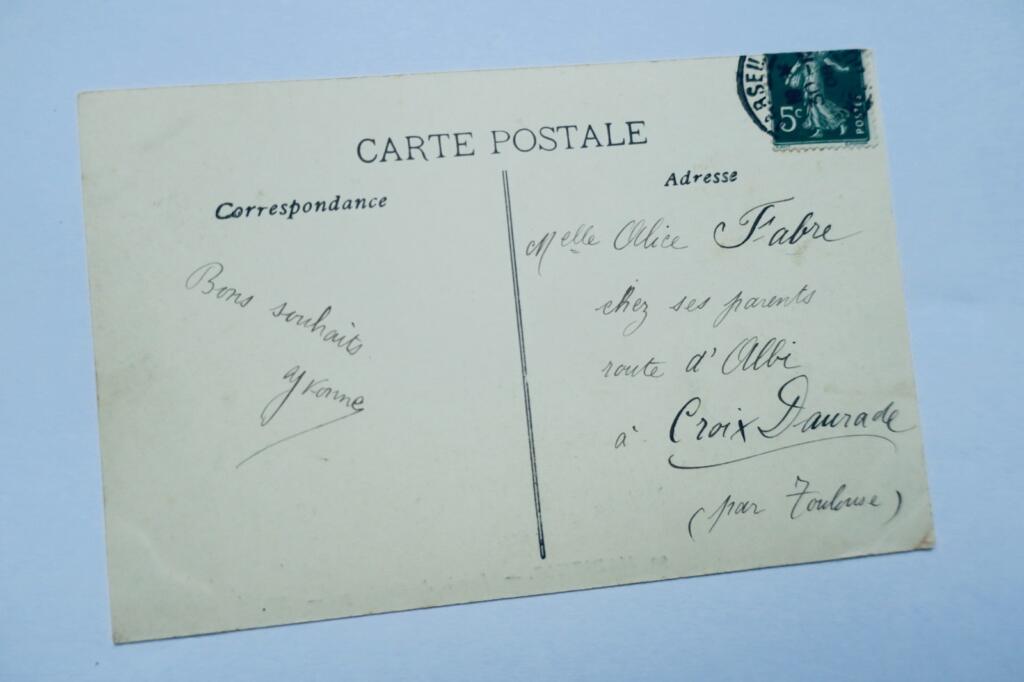 CARTE POSTALE
Correspondance
Bons souhaits
Yvonne
Adresse
Melle Alice Fabre
chez ses parents
route d'Albi
à Croix Daurade
(par Toulouse)
5c
POSTES